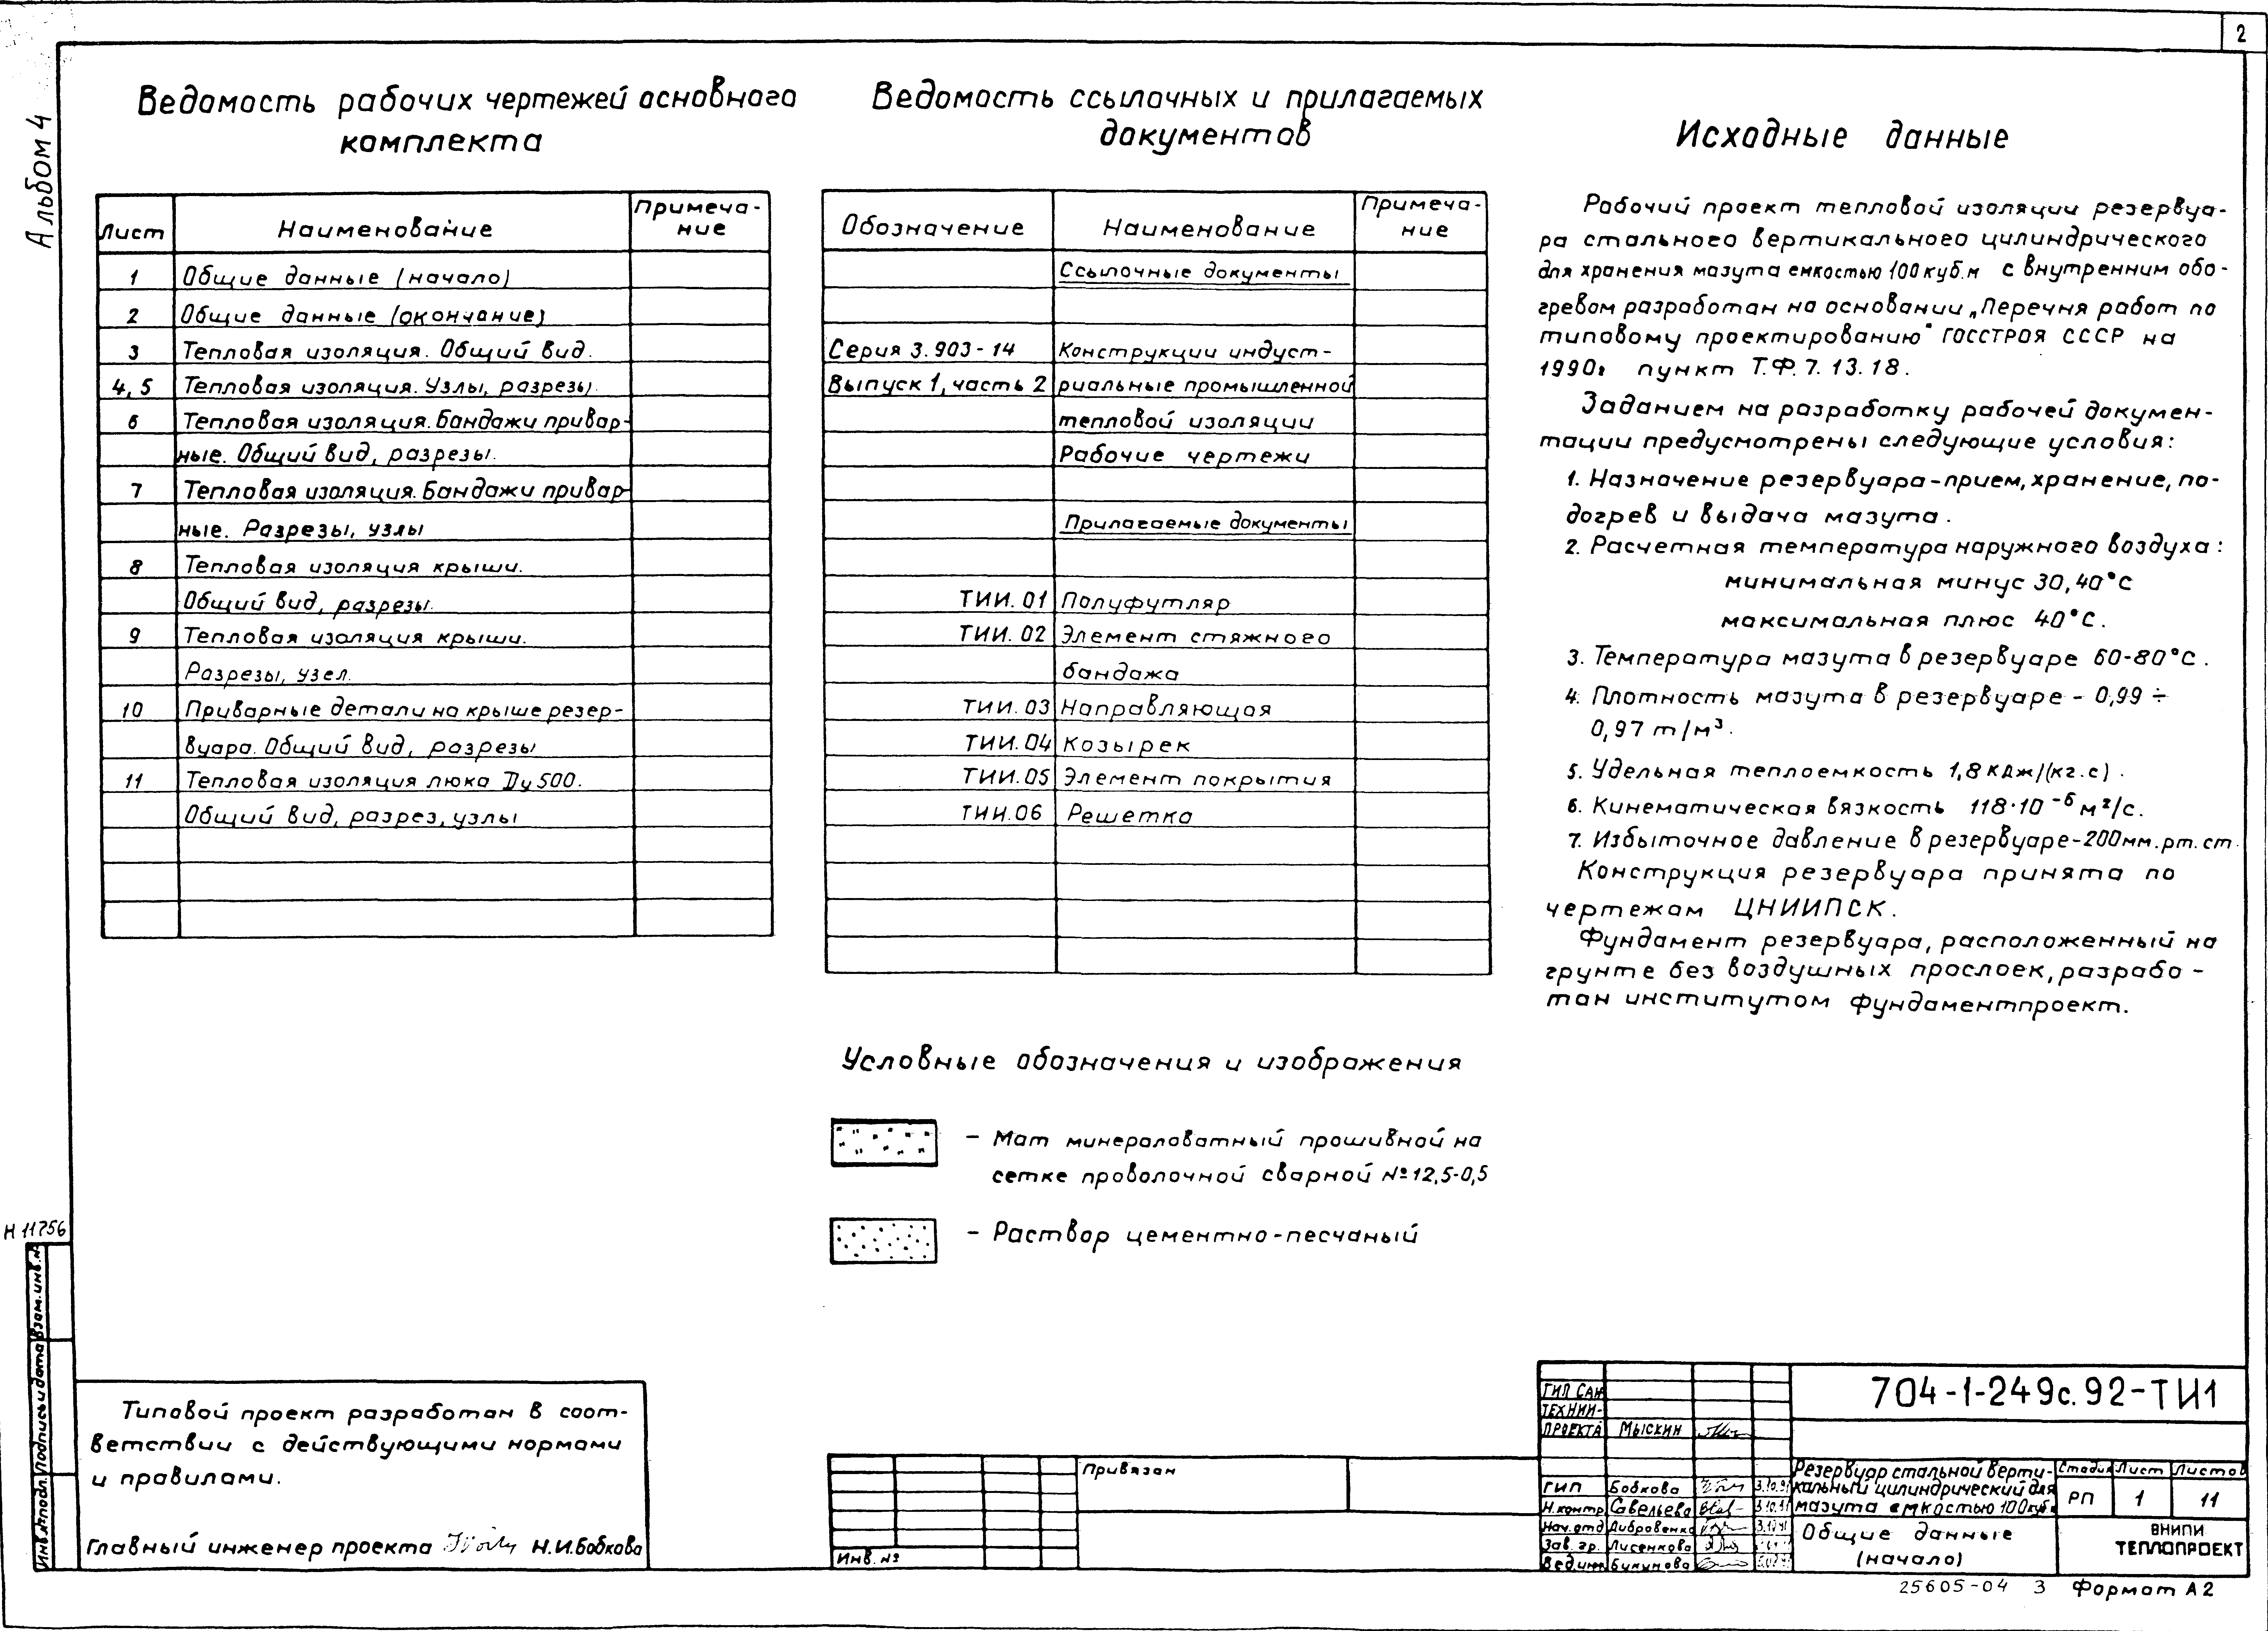 2
Альбом 4
Ведомость рабочих чертежей основного
комплекта
Лист Наименование Примеча-
ние
1 Общие данные (начало)
2 Общие данные (окончание)
3 Тепловая изоляция. Общий вид.
4, 5 Тепловая изоляция. Узлы, разрезы.
6 Тепловая изоляция. Бандажи привар-
ные. Общий вид, разрезы.
7 Тепловая изоляция. Бандажи привар-
ные. Разрезы, узлы
8 Тепловая изоляция крыши.
Общий вид, разрезы.
9 Тепловая изоляция крыши.
Разрезы, узел.
10 Приварные детали на крыше резер-
вуара. Общий вид, разрезы
11 Тепловая изоляция люка Ду 500.
Общий вид, разрез, узлы
Ведомость ссылочных и прилагаемых
документов
Обозначение Наименование Примеча-
ние
Ссылочные документы
Серия 3.903-14 Конструкции индуст-
Выпуск 1, часть 2 риальные промышленной
тепловой изоляции
Рабочие чертежи
Прилагаемые документы
ТИИ.01 Полуфутляр
ТИИ.02 Элемент стяжного
бандажа
ТИИ.03 Направляющая
ТИИ.04 Козырек
ТИИ.05 Элемент покрытия
ТИИ.06 Решетка
Условные обозначения и изображения
- Мат минераловатный прошивной на
сетке проволочной сварной №12,5-0,5
- Раствор цементно-песчаный
Исходные данные
Рабочий проект тепловой изоляции резервуа-
ра стального вертикального цилиндрического
для хранения мазута емкостью 100 куб.м с внутренним обо-
гревом разработан на основании „Перечня работ по
типовому проектированию" ГОССТРОЯ СССР на
1990г пункт Т.Ф.7.13.18.
Заданием на разработку рабочей докумен-
тации предусмотрены следующие условия:
1. Назначение резервуара-прием, хранение, по-
догрев и выдача мазута.
2. Расчетная температура наружного воздуха:
минимальная минус 30,40°С
максимальная плюс 40°С.
3. Температура мазута в резервуаре 60-80°С.
4. Плотность мазута в резервуаре - 0,99 ÷
0,97 т/м³.
5. Удельная теплоемкость 1,8 кДж/(кг.с).
6. Кинематическая вязкость 118·10⁻⁶ м²/с.
7. Избыточное давление в резервуаре-200мм.рт.ст.
Конструкция резервуара принята по
чертежам ЦНИИПСК.
Фундамент резервуара, расположенный на
грунте без воздушных прослоек, разрабо-
тан институтом фундаментпроект.
Н 11756
Взам.инв.№
Подпись и дата
Инв.№подл.
Типовой проект разработан в соот-
ветствии с действующими нормами
и правилами.
Главный инженер проекта Н.И.Бобкова
Привязан
Инв. №
ГИП САН
ТЕХНИИ-
ПРОЕКТА Мыскин
ГИП Бобкова 3.10.91
Н.контр Савельева 3.10.91
Нач.отд Дибровенко
Зав. гр. Лисенкова
Вед.инж Букунова
704-1-249с.92-ТИ1
Резервуар стальной верти-
кальный цилиндрический для
мазута емкостью 100куб.м
Стадия Лист Листов
РП 1 11
Общие данные
(начало)
ВНИПИ
ТЕПЛОПРОЕКТ
25605-04 3 Формат А2